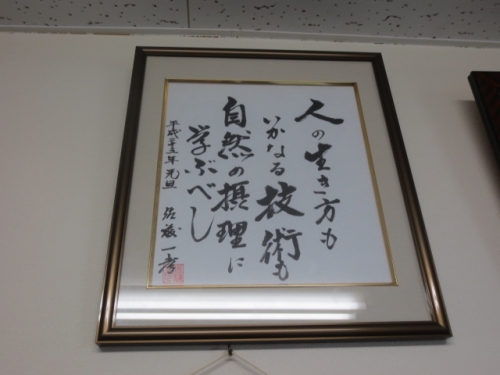 人の生き方も
いかなる技術も
自然の摂理に
学ぶべし
平成二十五年元旦 佐藤一彦